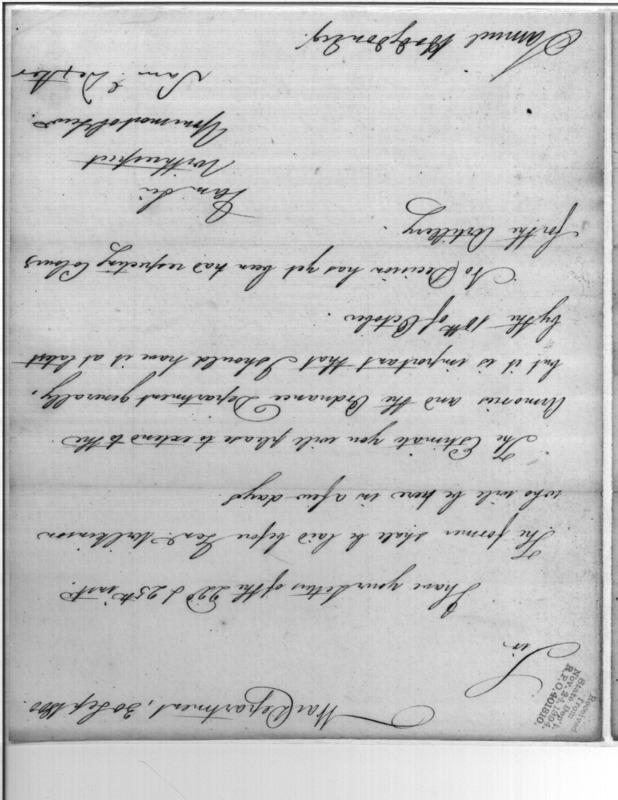 War Department, 30 Sep. 1800.
Sir
I have your Letters of the 22d & 25th inst.
The former shall be laid before Genl. Wilkinson
who will be here in a few days.
The Estimate you will please to extend to the
Armories and the Ordnance Department generally,
but it is important that I should have it at latest
by the 10th of October.
No Decision has yet been had respecting Colours
for the Artillery.
I am Sir
With respect
Your most ob. Serv.
Sam. Dexter
Samuel Hodgdon Esq.
Received
from
State Dep't.
Nov. 24, 1894.
R.P.O. 401810.